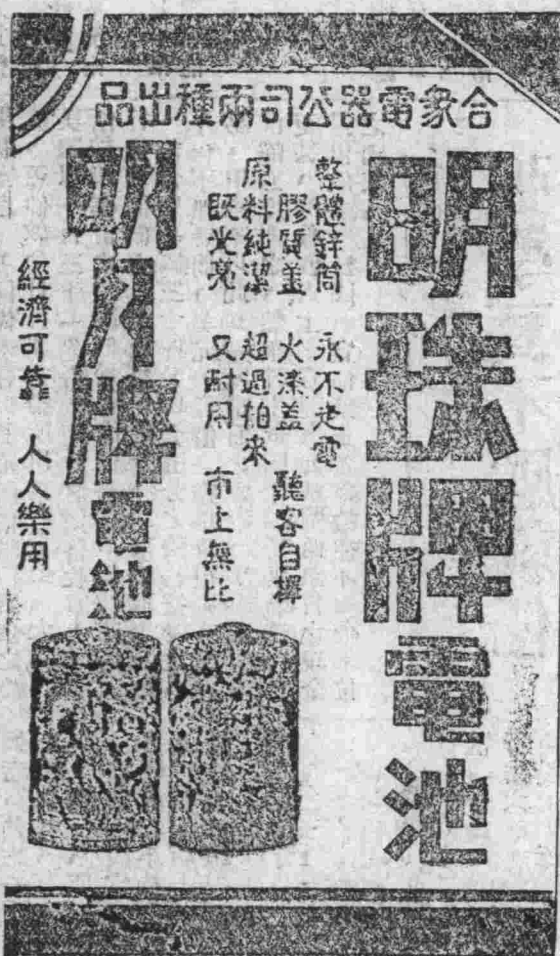 合衆電器公司兩種出品
明珠牌電池
整體鋅筒 永不走電
膠質蓋 火漆蓋 聽客自擇
原料純潔 超過拍來
既光亮 又耐用 市上無比
明月牌電池
經濟可靠 人人樂用